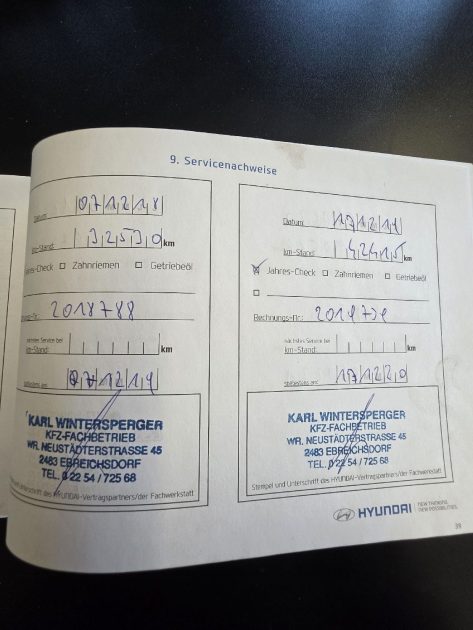 9. Servicenachweise
Datum: 07 12 18
km-Stand: 32530 km
res-Check Zahnriemen Getriebeöl
ungs-Nr.: 2018788
nächstes Service bei
km-Stand: km
07 12 19
KARL WINTERSPERGER
KFZ-FACHBETRIEB
WR. NEUSTÄDTERSTRASSE 45
2483 EBREICHSDORF
TEL. 0 22 54 / 725 68
und Unterschrift des HYUNDAI-Vertragspartners/der Fachwerkstatt
Datum: 17 12 19
km-Stand: km
Jahres-Check Zahnriemen Getriebeöl
Rechnungs-Nr.:
nächstes Service bei
km-Stand: km
spätestens am: 17 12 20
KARL WINTERSPERGER
KFZ-FACHBETRIEB
WR. NEUSTÄDTERSTRASSE 45
2483 EBREICHSDORF
TEL. 0 22 54 / 725 68
Stempel und Unterschrift des HYUNDAI-Vertragspartners/der Fachwerkstatt
HYUNDAI
NEW THINKING.
NEW POSSIBILITIES.
39